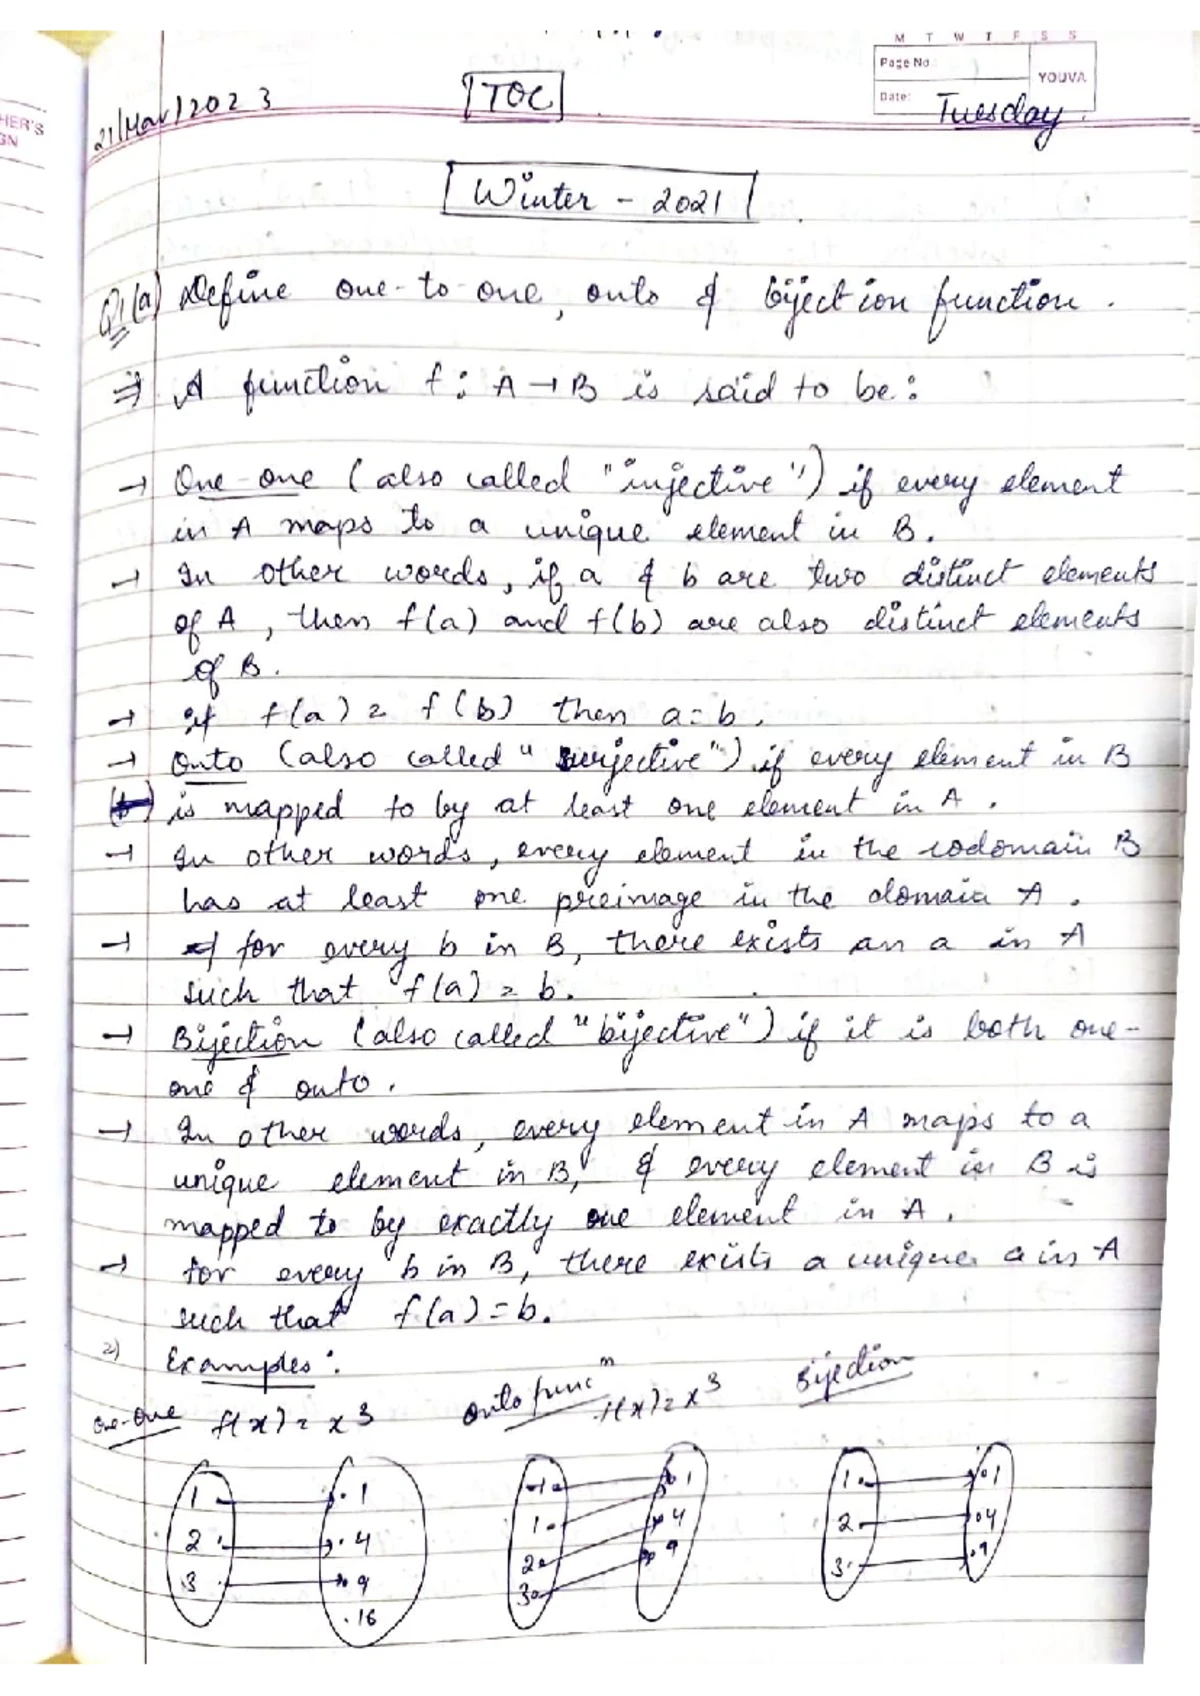 M T W T F S S
Page No.:
YOUVA
Date:
HER'S
GN
21/Mar/2023
TOC
Tuesday.
Winter - 2021
Q1(a) Define one-to-one, onto & bijection function.
⇒ A function f: A → B is said to be:
→ One-one (also called "injective") if every element
in A maps to a unique element in B.
→ In other words, if a & b are two distinct elements
of A, then f(a) and f(b) are also distinct elements
of B.
→ if f(a) = f(b) then a=b.
→ Onto (also called "surjective") if every element in B
is mapped to by at least one element in A.
→ In other words, every element in the codomain B
has at least one preimage in the domain A.
→ for every b in B, there exists an a in A
such that f(a) = b.
→ Bijection (also called "bijective") if it is both one-
one & onto.
→ In other words, every element in A maps to a
unique element in B, & every element in B is
mapped to by exactly one element in A.
→ for every b in B, there exists a unique a in A
such that f(a)=b.
2) Examples:
one-one f(x) = x3 onto funcⁿ f(x) = x3 Bijection
1 .1 -1 .1 1 .1
2 .4 1 4 2 .4
3 9 2 9 3 .9
.16 3